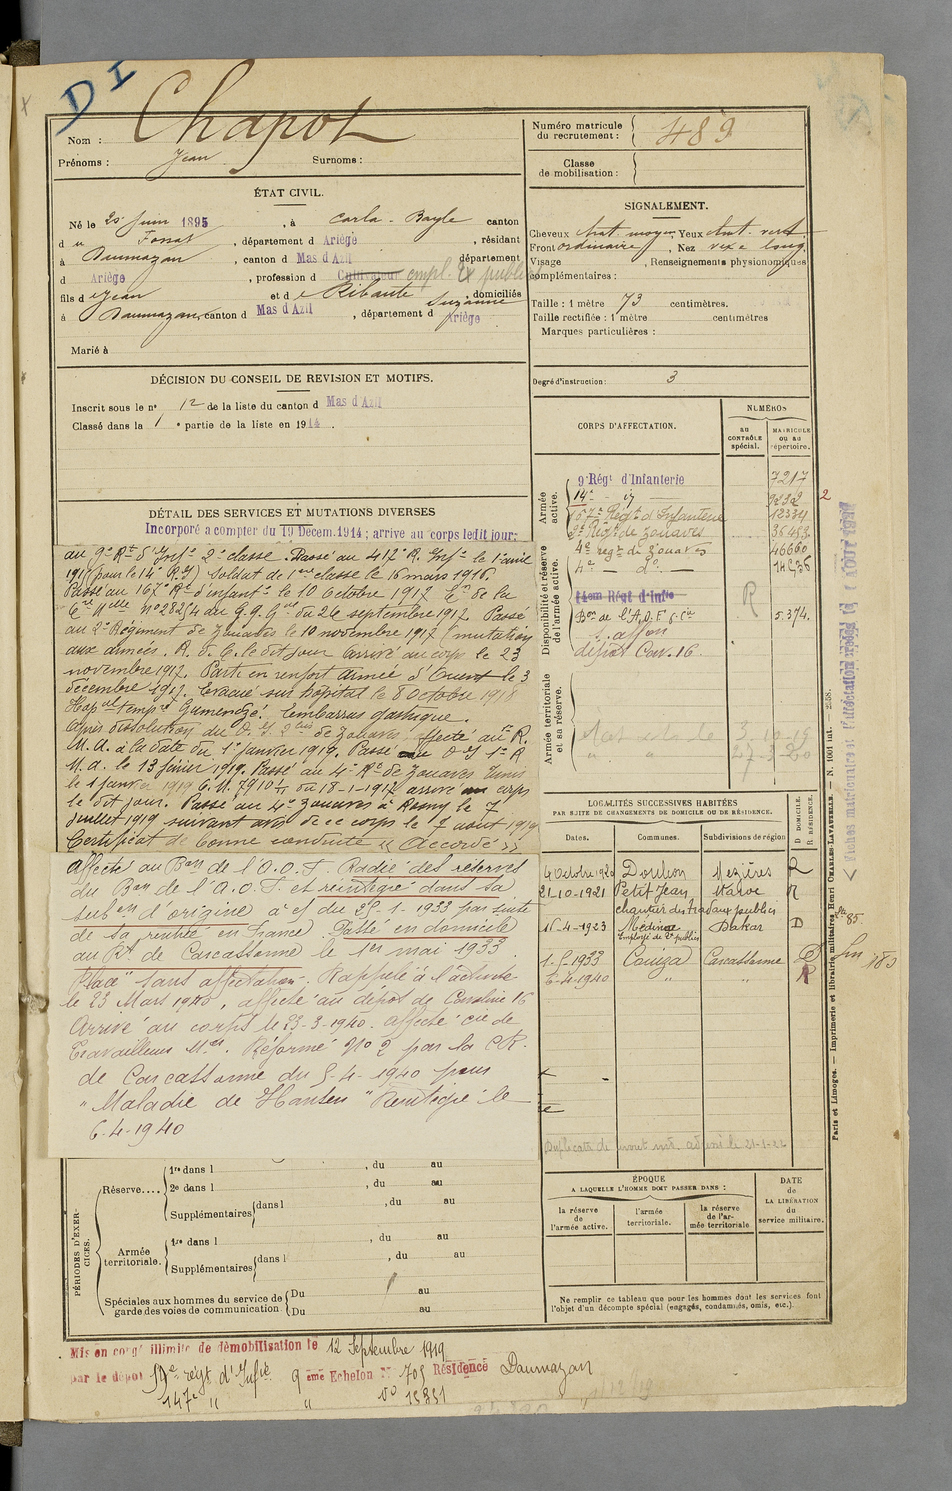 D I
Nom : Chapot
Prénoms : Jean Surnoms :
Numéro matricule du recrutement : 489
Classe de mobilisation :
ÉTAT CIVIL.
Né le 20 Juin 1895, à Carla-Bayle canton
du Fossat, département d Ariège, résidant
à Daumazan, canton d Mas d'Azil département
d Ariège, profession d Cultivateur empl. tx publics
fils de Jean et de Ribaute Suzanne, domiciliés
à Daumazan, canton d Mas d'Azil, département d Ariège
Marié à
SIGNALEMENT.
Cheveux chat. moyen, Yeux chat. vert.
Front ordinaire, Nez long.
Visage , Renseignements physionomiques
complémentaires :
Taille : 1 mètre 73 centimètres.
Taille rectifiée : 1 mètre centimètres
Marques particulières :
Degré d'instruction : 3
DÉCISION DU CONSEIL DE REVISION ET MOTIFS.
Inscrit sous le n° 12 de la liste du canton d Mas d'Azil
Classé dans la 1 e partie de la liste en 1914.
DÉTAIL DES SERVICES ET MUTATIONS DIVERSES
Incorporé a compter du 19 Décem. 1914; arrive au corps ledit jour;
au 9e Rt d'Infie 2e classe. Passé au 412e R. Infie le 1 avril
1915 (pour le 14e R.I) Soldat de 1ère classe le 16 mars 1916.
Passé au 167e Rt d'infantie le 10 Octobre 1917
n° 28254 du G.Q.Gal du 26 septembre 1917. Passé
au 2e Régiment de Zouaves le 10 novembre 1917 (mutation
aux armées. R. d. C. le dit jour arrivé au corps le 23
novembre 1917. Parti en renfort armée d'Orient le 3
décembre 1917. Evacué sur hôpital le 8 Octobre 1918
Hopal tempre Gumendzé. Embarras gastrique.
Après dissolution du de Zouaves affecté au 1er R.
M. A. à la date du 1er Janvier 1919. Passé au 1er R
M. A. le 13 février 1919. Passé au 4e Rt de Zouaves Tunis
le 1 Janvier 1919 C.M. 7910 du 18-1-1917 arrivé au corps
le dit jour. Passé au 4e Zouaves à Rosny le 7
Juillet 1919 suivant avis de ce corps le 7 août 1919
Certificat de bonne conduite "Accordé"
Affecté au Bon de l'A.O.F. Radié des réserves
du Bon de l'A.O.F. et réintégré dans sa
subon d'origine à c/ du 25-1-1933 par suite
de sa rentrée en France. Passé en domicile
au Rt de Carcassonne le 1er mai 1933.
Placé "sans affectation". Rappelé à l'activité
le 23 Mars 1940, affecté au dépôt de Cavalerie 16
Arrivé au corps le 23-3-1940. affecté cie de
Travailleurs Mres. Réformé N° 2 par la CR.
de Carcassonne du 5-4-1940 pour
"Maladie de Hansen" Renvoyé le
6.4.1940
CORPS D'AFFECTATION.
NUMÉROS
AU CONTRÔLE spécial.
MATRICULE ou au répertoire.
Armée active.
9 Régt d'Infanterie 7217
14e - dy - 9232 2
167e Régt d'Infanterie 12334
2e Régt de Zouaves 36483
Disponibilité et réserve de l'armée active.
4e régt de Zouaves 46660
4e - do - 14536
14em Rég1 d'Infie
Bon de l'A.O.F. 6e Cie R 5.374.
s. affon
dépôt Cav. 16.
Armée territoriale et sa réserve.
3.10-19
" " 27-3-20
LOCALITÉS SUCCESSIVES HABITÉES
PAR SUITE DE CHANGEMENTS DE DOMICILE OU DE RÉSIDENCE.
Dates. Communes. Subdivisions de région D. DOMICILE. R. RÉSIDENCE.
4 Octobre 1920 Doulon Mezières R
21-10-1921 Petit Jean R
chantier des travaux publics
16-4-1923 Médine Dakar D
Employé de tx publics
1.5.1933 Couiza Carcassonne D
6-4-1940 " " R
Duplicata de livret adressé le 21-1-22
PÉRIODES D'EXERCICES.
Réserve.... 1re dans l , du au
2e dans l , du au
Supplémentaires dans l , du au
Armée territoriale. 1re dans l , du au
Supplémentaires dans l , du au
Spéciales aux hommes du service de garde des voies de communication Du au
Du au
ÉPOQUE
A LAQUELLE L'HOMME DOIT PASSER DANS :
la réserve de l'armée active.
l'armée territoriale.
la réserve de l'armée territoriale
DATE de LA LIBÉRATION du service militaire.
Ne remplir ce tableau que pour les hommes dont les services font l'objet d'un décompte spécial (engagés, condamnés, omis, etc.).
Mis en congé illimité de démobilisation le 12 Septembre 1919
par le dépôt 59e régt d'Infie 9 ème Echelon N° 705 Résidence Daumazan
147e " " vo 15351
Paris et Limoges. — Imprimerie et librairie militaires Henri CHARLES-LAVAUZELLE. — N. 1001 int. — 2558.